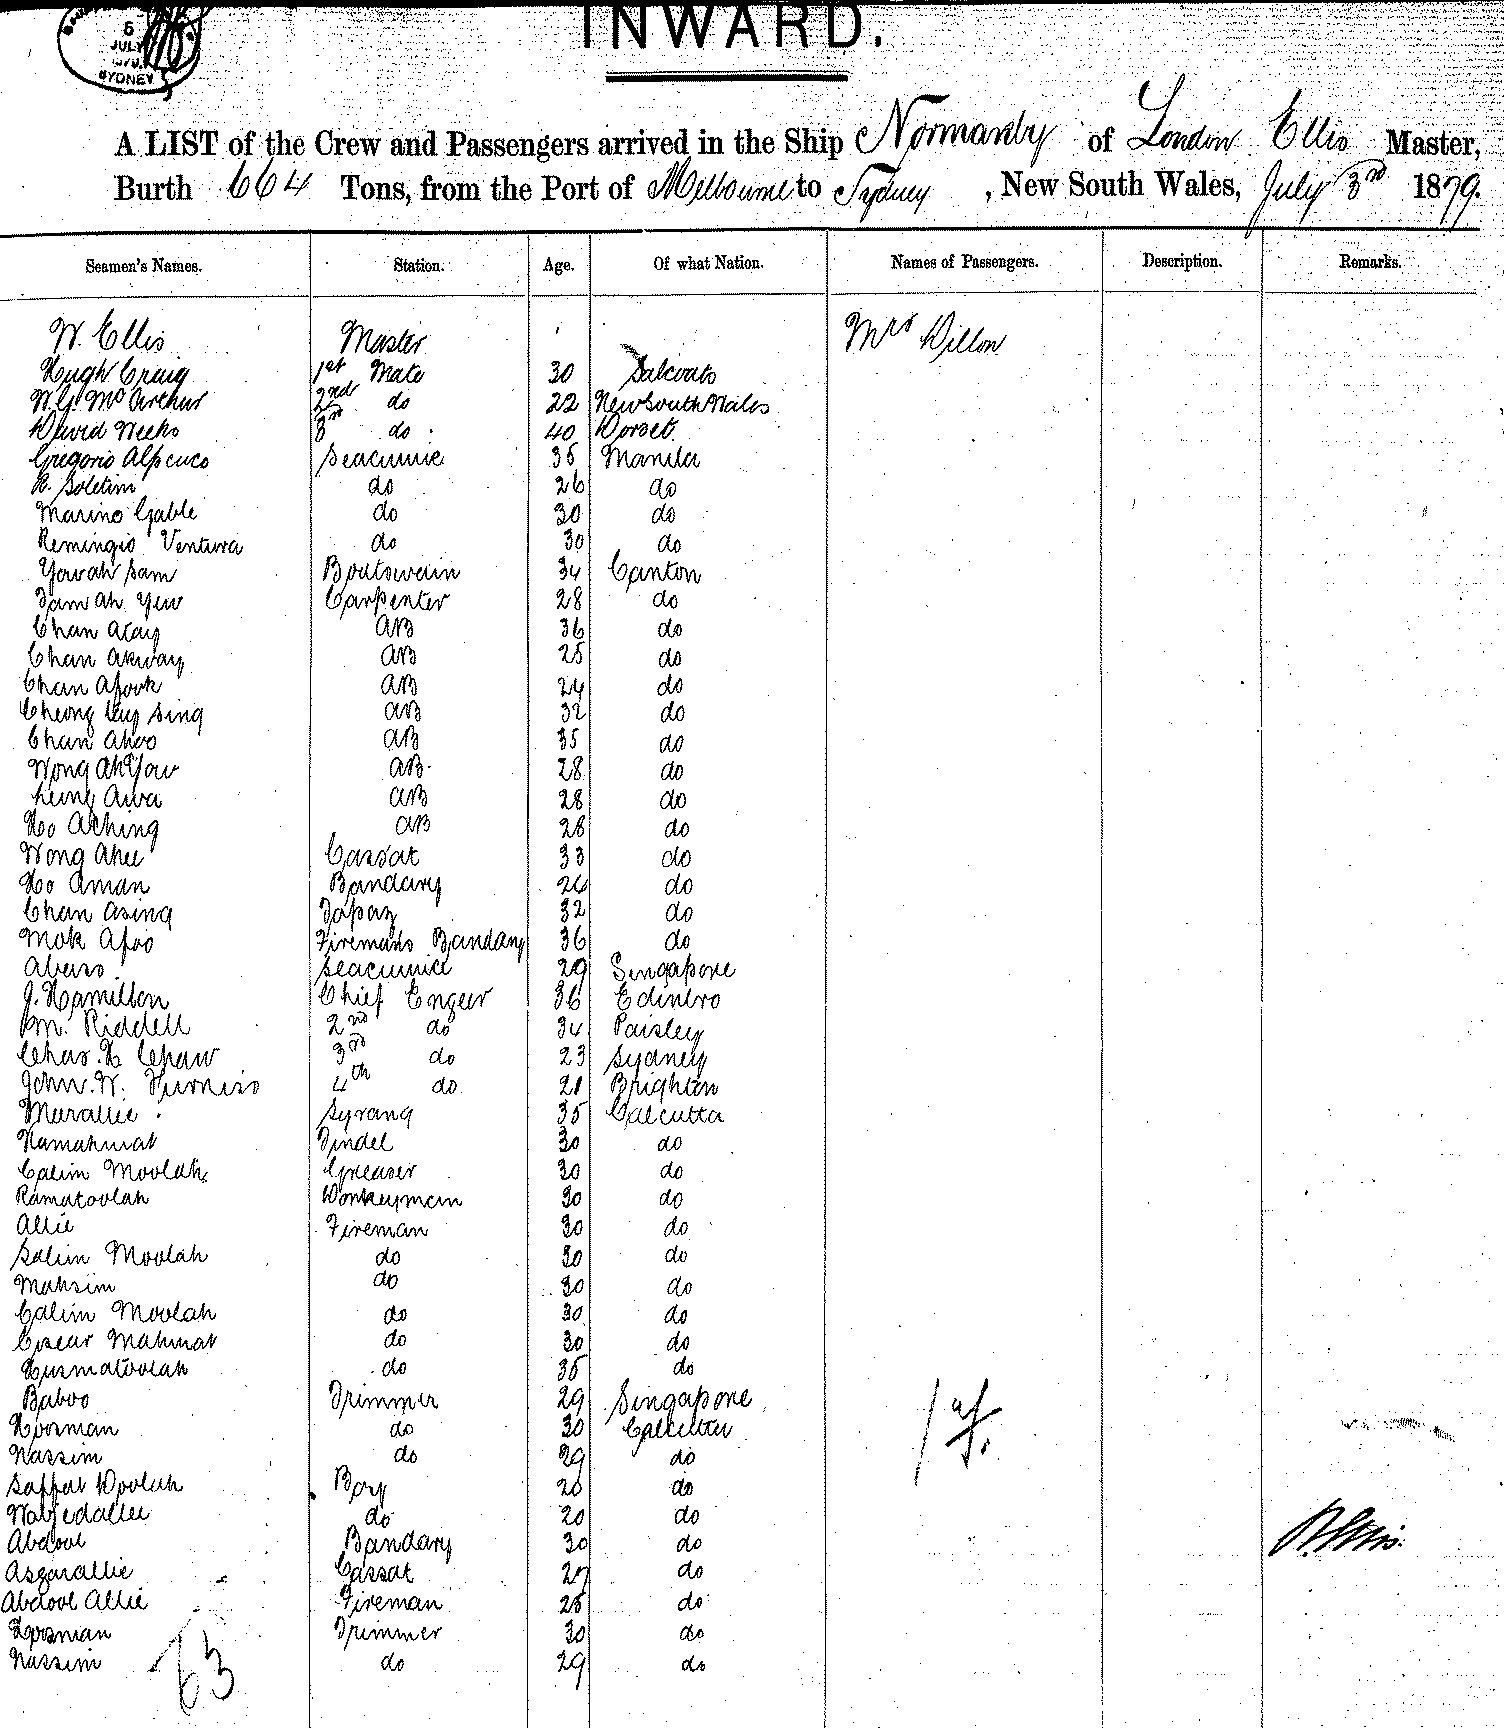 6
JULY
SYDNEY
INWARD.
A LIST of the Crew and Passengers arrived in the Ship Normanby of London Ellis Master,
Burth 664 Tons, from the Port of Melbourne to Sydney, New South Wales, July 3rd 1879.
Seamen's Names. Station. Age. Of what Nation. Names of Passengers. Description. Remarks.
W. Ellis Master Mrs Dillon
Hugh Craig 1st Mate 30 Salcoats
W. G. McArthur 2nd do 22 New South Wales
David Weeks 3rd do 40 Dorset
Gregorio Seacunnie 35 Manila
R. Soletim do 26 do
Marino Gable do 30 do
Remingio Ventura do 30 do
Yowah Sam Boatswain 34 Canton
Tam Ah Yew Carpenter 28 do
Chan AB 36 do
Chan Akway AB 25 do
Chan Afook AB 24 do
Cheong Sing AB 32 do
Chan Ahoo AB 35 do
Wong Ah Yow AB 28 do
Leung Awa AB 28 do
Ho Aching AB 28 do
Wong Ahee Cassat 33 do
Ho Aman Bandary 26 do
Chan Asing Topaz 32 do
Mok Afoo Firemans Bandary 36 do
Abasso Seacunnie 29 Singapore
J. Hamilton Chief Engeer 36 Edinbro
M. Riddell 2nd do 34 Paisley
Chas. H Chaw 3rd do 23 Sydney
John. W. Furniss 4th do 21 Brighton
Murallie Syrang 35 Calcutta
Namahmat Tindel 30 do
Calim Moolah Greaser 30 do
Ramatoolah Donkeyman 30 do
Allie Fireman 30 do
Salim Moolah do 30 do
Mahsim do 30 do
Calim Moolah do 30 do
Mahmat do 30 do
Husmatoolah do 35 do
Baboo Trimmer 29 Singapore
Hoosman do 30 Calcutta
Nassim do 29 do
Saffat Doolah Boy 20 do
do 20 do
Abdool Bandary 30 do
Asgarallie Cassat 27 do
Abdool Allie Fireman 25 do
Hoosman Trimmer 30 do
Nassim do 29 do
W. Ellis.